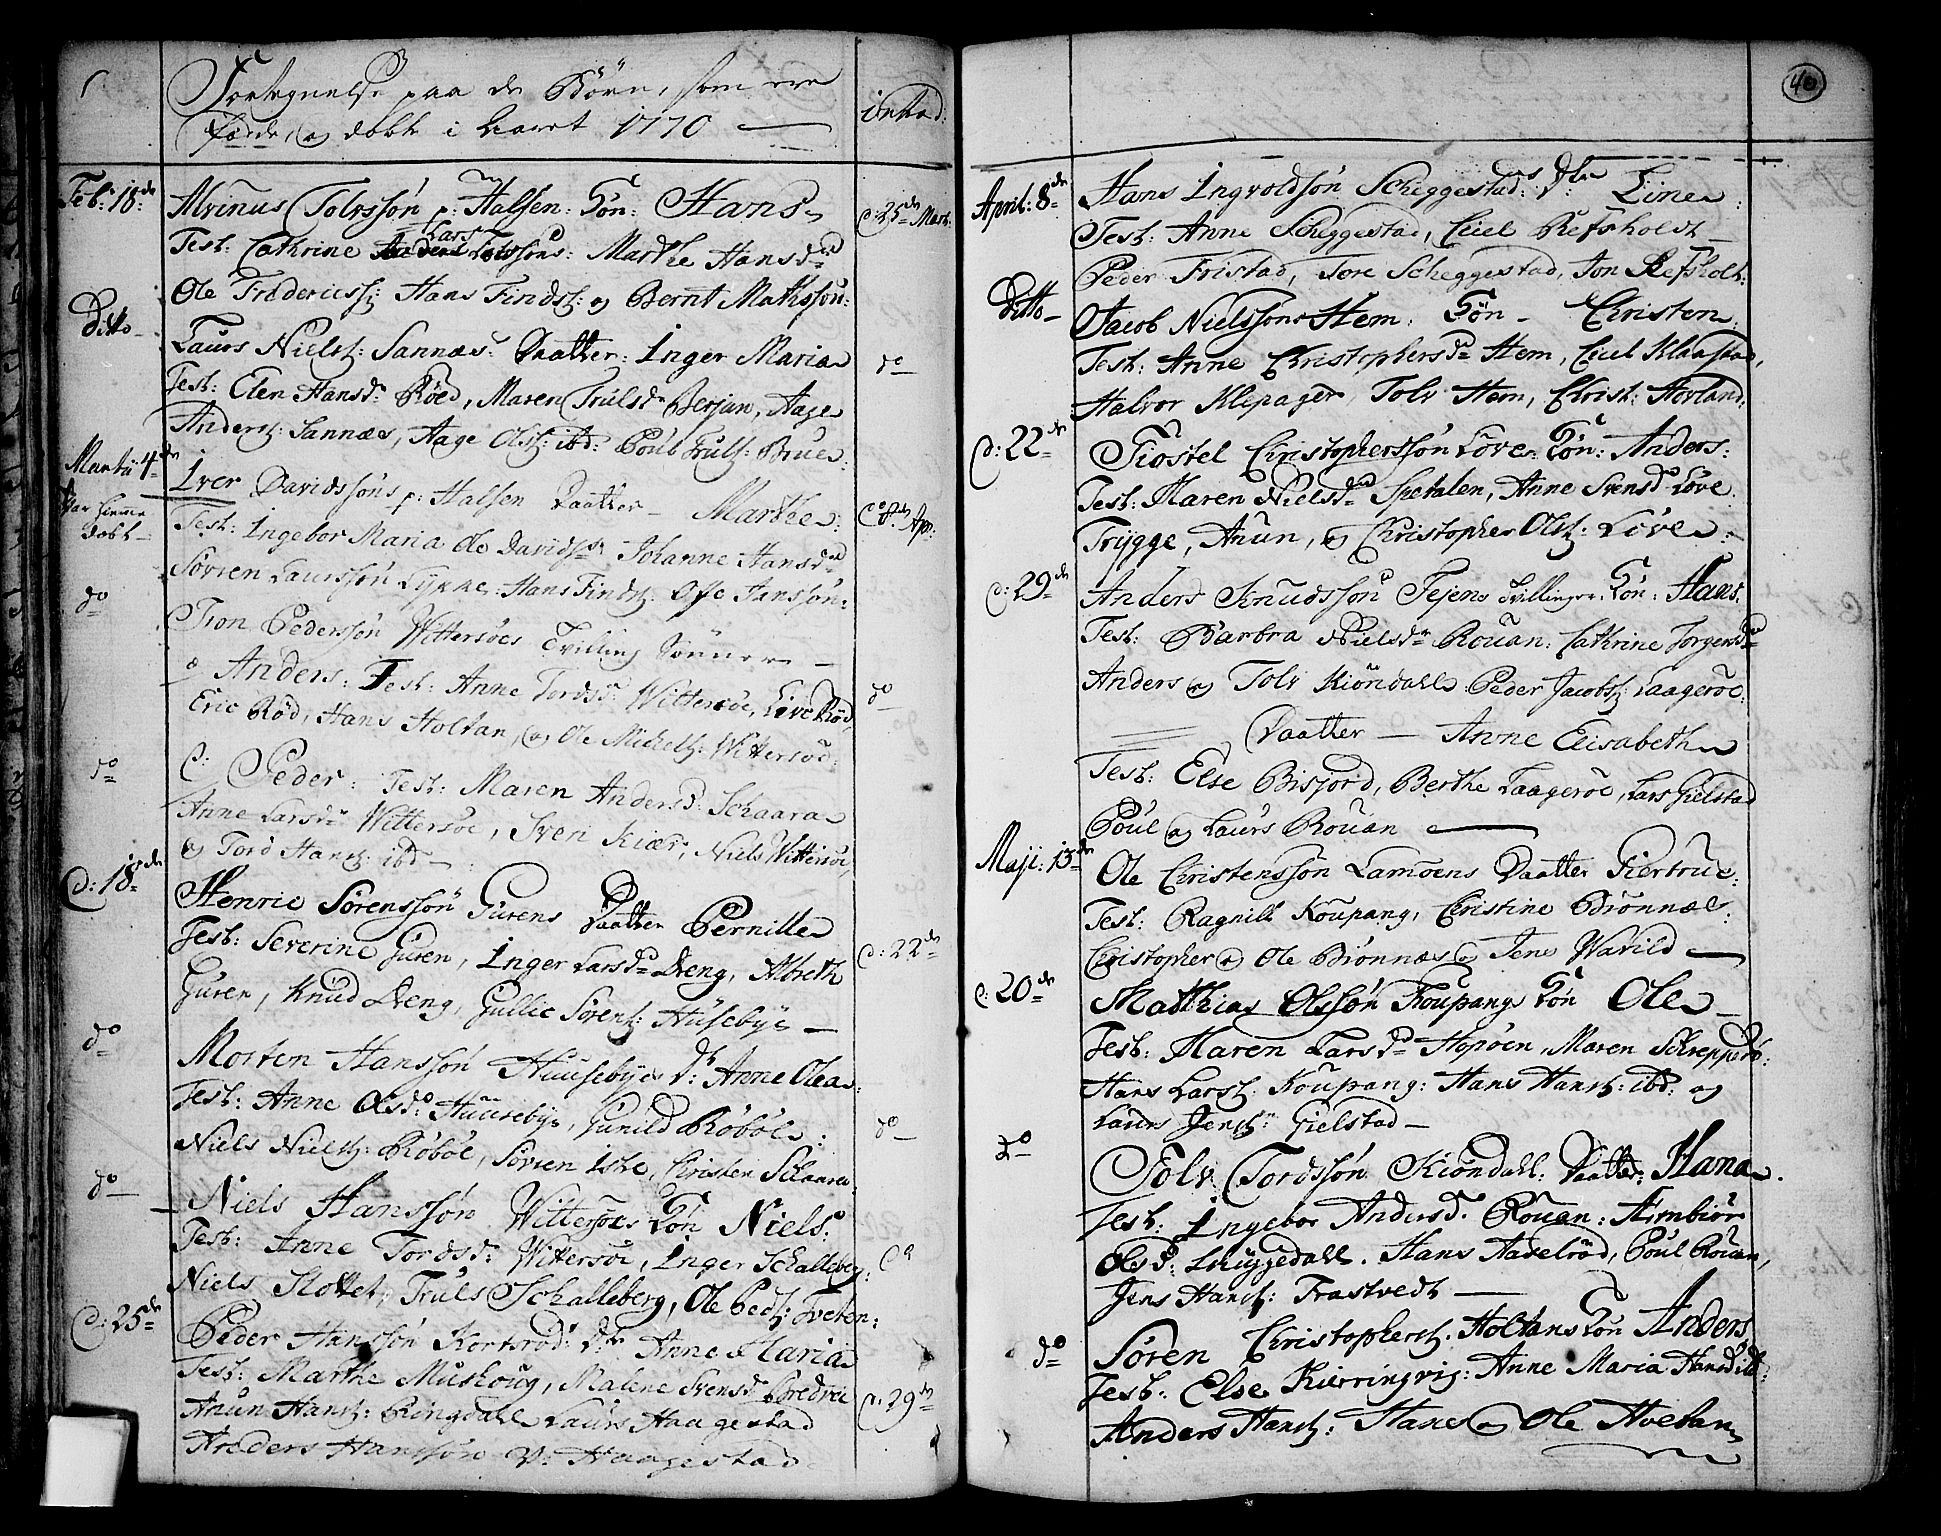 Fortegnelse paa de Börn, som ere
födde, og döbte i Aaret 1770
introd:
Feb: 18de
Alvinus Tolvssön p: Halsen: Sön: Hans
c: 25de Mart:
Test: Cathrine Lars Tolvssöns: Marthe Hansd
Ole Friderichs: Hans Findss: og Bernt Mathssön:
Ditto
Laurs Nielss: Sannæs: Daatter: Inger Maria
do
Test: Elen Hansd: Röed, Maren Trulsd Berjan, Aage
Anderss: Sannæs, Aage Olss: ibd: Poul Truls: Brues:
Martii 4de
Iver Davidssöns p: Halsen Daatter Marthe:
var hiemme döbt
c: 8de Apr:
Test: Ingebor Maria Ole Davids: Johanne Hansd
Sövren Laurssön Lykke: Hans Findss: Offe Janssön:
do
Tron Pederssön Wittersöes Tvilling Sönner
Anders: Test: Anne Tordsd: Wittersöe, Live Röd,
do
Eric Röd, Hans Holtan, og Ole Michelss: Wittersöe
do
Peder: Test: Maren Andersd: Schaara
Anne Larsd Wittersöe, Sven Kiær, Niels Wittersöe,
og Tord Hanss: ibd
d: 18de
Henric Sörenssön Gurens Daatter Pernille
Test: Severine Guren, Inger Larsd Dreng, Albreth
d: 22de
Guren, Knud Dreng, Gullic Sörenss: Husebye
do
Morten Hanssön Huusebye D: Anne Olea:
Test: Anne Olsd: Huusebye, Gunild Röböle:
do
Niels Nielss: Röböe, Sövren Iske, Christen Schaara:
do
Niels Hanssön Wittersöes Sön Niels:
Test: Anne Tordsd: Wittersöe, Inger Schalleberg:
do
Niels Slottet, Truls Schalleberg, Ole Peds: Tveten:
d: 25de
Peder Hanssön Kortsröd: D: Anne Maria
Test: Marthe Muskoug, Malene Svensd Bredvei
d: 29de
Anun Hanss: Ringdall Laurs Haagestad
Anders Hanssön N: Haagestad
40
April: 8de
Hans Ingvoldsön Scheggestad: D: Line
Test: Anne Scheggestad, Cicil Refsholdt
Peder Fristad, Tore Scheggestad, Jon Refsholt:
Ditto
Jacob Nielssöns Hem: Sön Christen
Test: Anne Christophersd Hem, Cicil Klaastad,
Halvor Klepager, Tolv Hem, Christ: Hovland:
d: 22de
Tiostel Christopherssön Löve: Sön: Anders:
Test: Maren Nielsd Spetalen, Anne Svensd Löve
Trygge, Anun, og Christopher Olss: Löve:
d: 29de
Anders Knudssön Fejens Tvillinger: Sön: Hans.
Test: Barbra Nielsd Rouan: Cathrine Jorgensd
Anders og Tolv Kiöndahl: Peder Jacobss: Laageröe:
Daatter Anne Elisabeth
Test: Else Bisjord, Berthe Laageröe, Lars Gielstad
Poul og Laurs Rouan
Maji: 13de
Ole Christenssön Lamöens Daatter Giertrue:
Test: Ragnild Koupang, Christine Brönnæs:
Christopher og Ole Brönnæs og Jens Warild
d: 20de
Matthias Olssön Koupangs Sön Ole
Test: Maren Larsd Hopöen, Maren Schepperöe:
Hans Larss: Koupang: Hans Hanss: ibd: og
Laurs Jenss: Gielstad
do
Tolv Tordssön Kiöndahl: Daatter: Hana.
Test: Ingebor Andersd: Rouan: Armbiör
Olsd: Huggedall. Hans Axelröd, Poul Rouan,
Jens Hanss: Frastvedt
do
Sören Christopherss: Holtans Sön Anders,
Test: Else Kierringvig: Anne Maria Hansd ibd:
Anders Hanss: Hans og Ole Hoetan